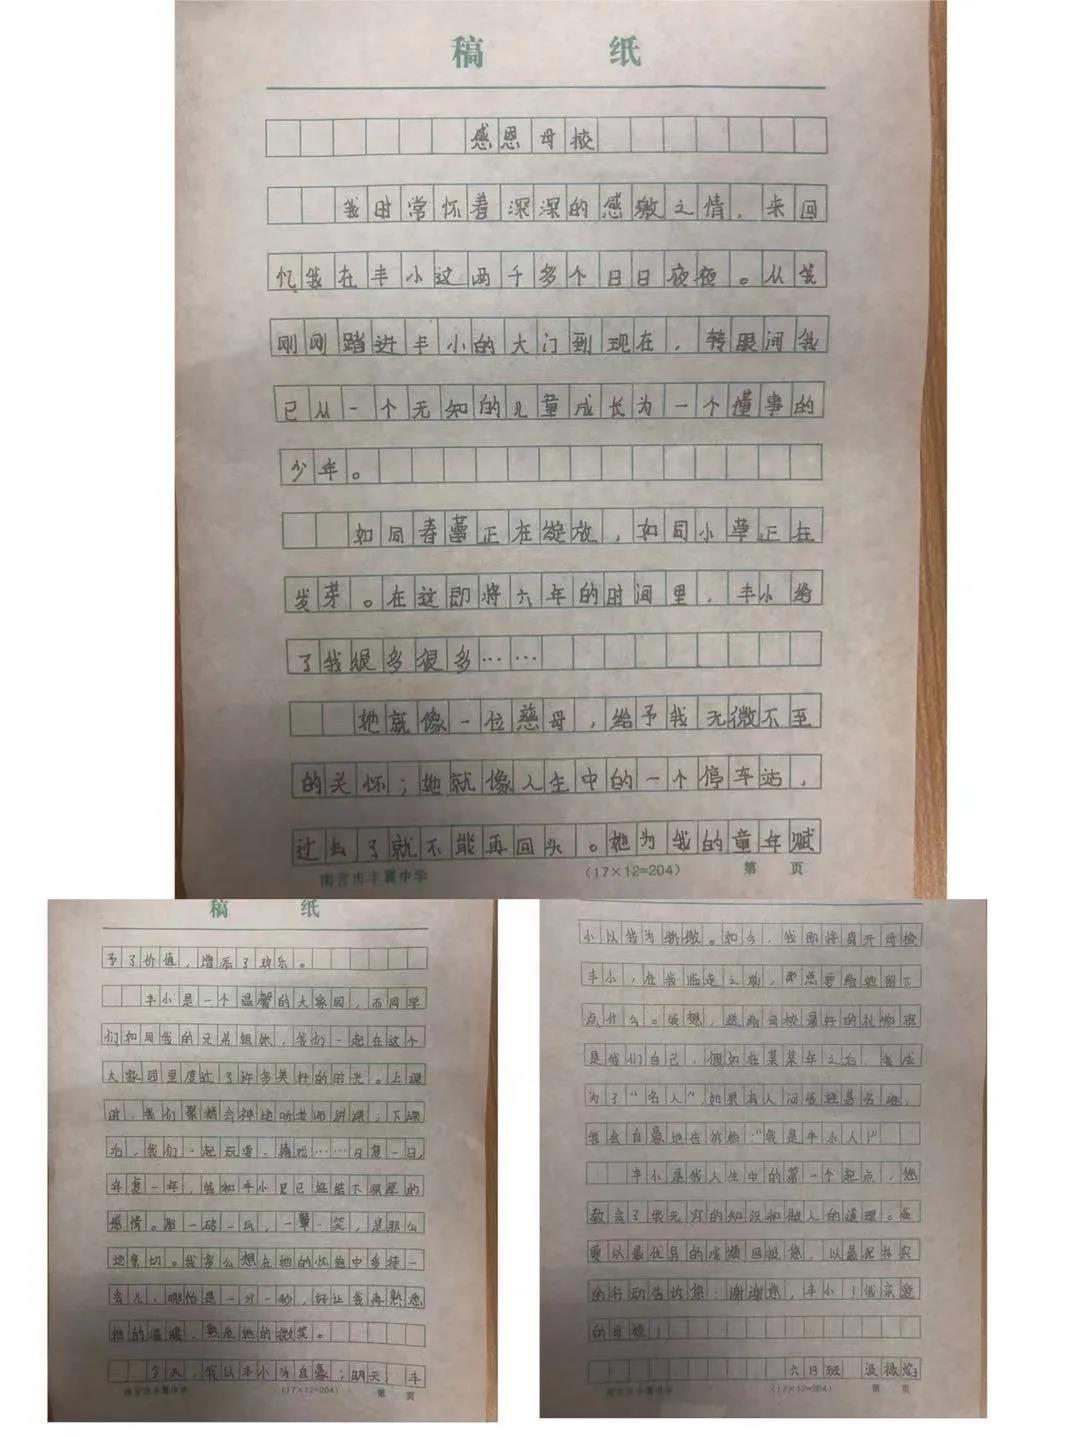 稿 纸
感恩母校
我时常怀着深深的感激之情，来回
忆我在丰小这两千多个日日夜夜。从我
刚刚踏进丰小的大门到现在，转眼间我
已从一个无知的儿童成长为一个懂事的
少年。
如同春蕾正在绽放，如同小草正在
发芽。在这即将六年的时间里，丰小给
了我很多很多……
她就像一位慈母，给予我无微不至
的关怀；她就像人生中的一个停车站，
过去了就不能再回头。她为我的童年赋
南宫市丰翼中学 (17×12=204) 第 页
稿 纸
予了价值，增添了欢乐。
丰小是一个温馨的大家园，而同学
们如同我的兄弟姐妹，我们一起在这个
大家园里度过了许多美好的时光。上课
时，我们聚精会神地听老师讲课；下课
后，我们一起玩耍、嬉戏……日复一日，
年复一年，我和丰小早已结下深厚的
感情。那一砖一瓦，一颦一笑，是那么
地亲切。我多么想在她的怀抱中多待一
会儿，哪怕是一分一秒，好让我再熟悉
她的温暖，熟悉她的微笑。
今天，我以丰小为自豪；明天，丰
南宫市丰翼中学 (17×12=204) 第 页
小以我为骄傲。如今，我即将离开母校
丰小，在我临走之前，总要给她留下
点什么。我想，送给母校最好的礼物
是我们自己，假如在某某年之后，我成
为了“名人”，如果有人问
我会自豪地告诉他：“我是丰小人！”
丰小是我人生中的第一个起点，您
教会了我无穷的知识和做人的道理。我
要以最优异的成绩回报您，以最
的行动告诉您：谢谢您，丰小！我亲爱
的母校！
六 班
南宫市丰翼中学 (17×12=204) 第 页